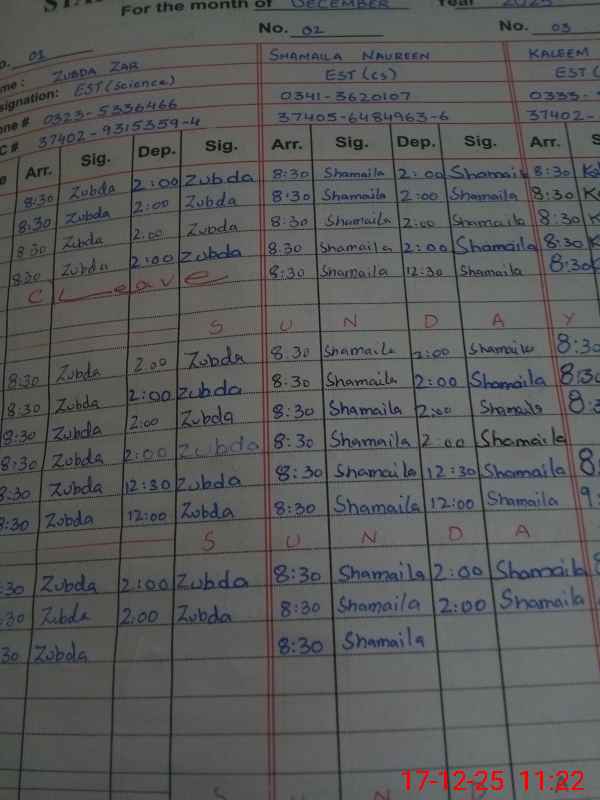 For the month of DECEMBER Year 2025
No. 01 No. 02 No. 03
ZUBDA ZAR SHAMAILA NAUREEN KALEEM
EST (Science) EST (CS) EST (
0323-5336466 0341-3620107 0333-
37402-9315359-4 37405-6484963-6 37402-
Arr. Sig. Dep. Sig. Arr. Sig. Dep. Sig. Arr. S
8:30 Zubda 2:00 Zubda 8:30 Shamaila 2:00 Shamaila 8:30
8:30 Zubda 2:00 Zubda 8:30 Shamaila 2:00 Shamaila 8:30
8:30 Zubda 2:00 Zubda 8:30 Shamaila 2:00 Shamaila 8:30
8:30 Zubda 2:00 Zubda 8:30 Shamaila 2:00 Shamaila 8:30
C Leave 8:30 Shamaila 12:30 Shamaila 8:30
S U N D A Y
8:30 Zubda 2:00 Zubda 8:30 Shamaila 2:00 Shamaila 8:30
8:30 Zubda 2:00 Zubda 8:30 Shamaila 2:00 Shamaila 8:30
8:30 Zubda 2:00 Zubda 8:30 Shamaila 2:00 Shamaila
8:30 Zubda 2:00 Zubda 8:30 Shamaila 2:00 Shamaila
8:30 Zubda 12:30 Zubda 8:30 Shamaila 12:30 Shamaila
8:30 Zubda 12:00 Zubda 8:30 Shamaila 12:00 Shamaila
S U N D A
:30 Zubda 2:00 Zubda 8:30 Shamaila 2:00 Shamaila
:30 Zubda 2:00 Zubda 8:30 Shamaila 2:00 Shamaila
30 Zubda 8:30 Shamaila
S U N D A
17-12-25 11:22